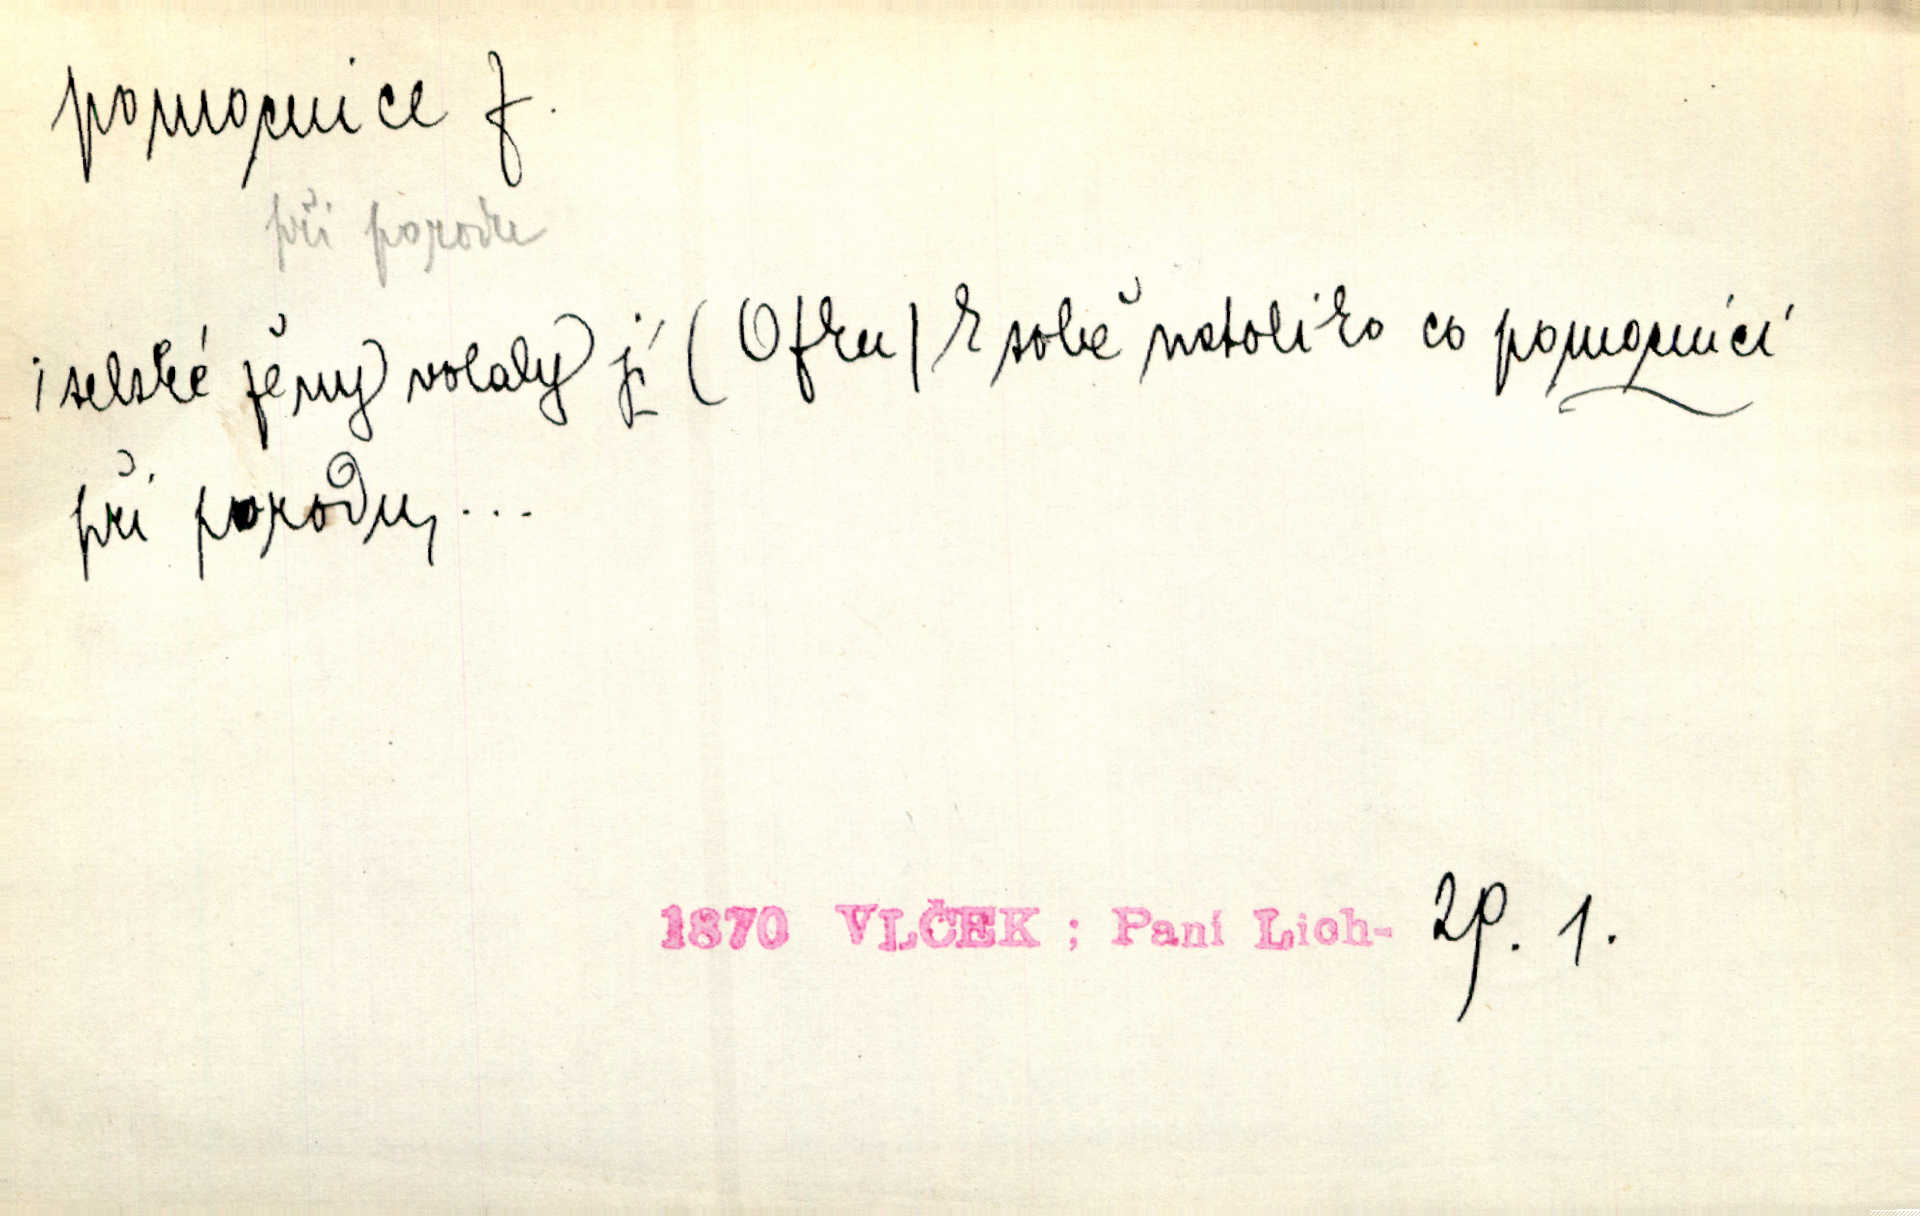 pomocnice f.
při porodu
i selské ženy volaly ji (Ofku) k sobě natoliko co pomocnici
při porodu, ...
1870 VLČEK ; Paní Lich- 2p. 1.